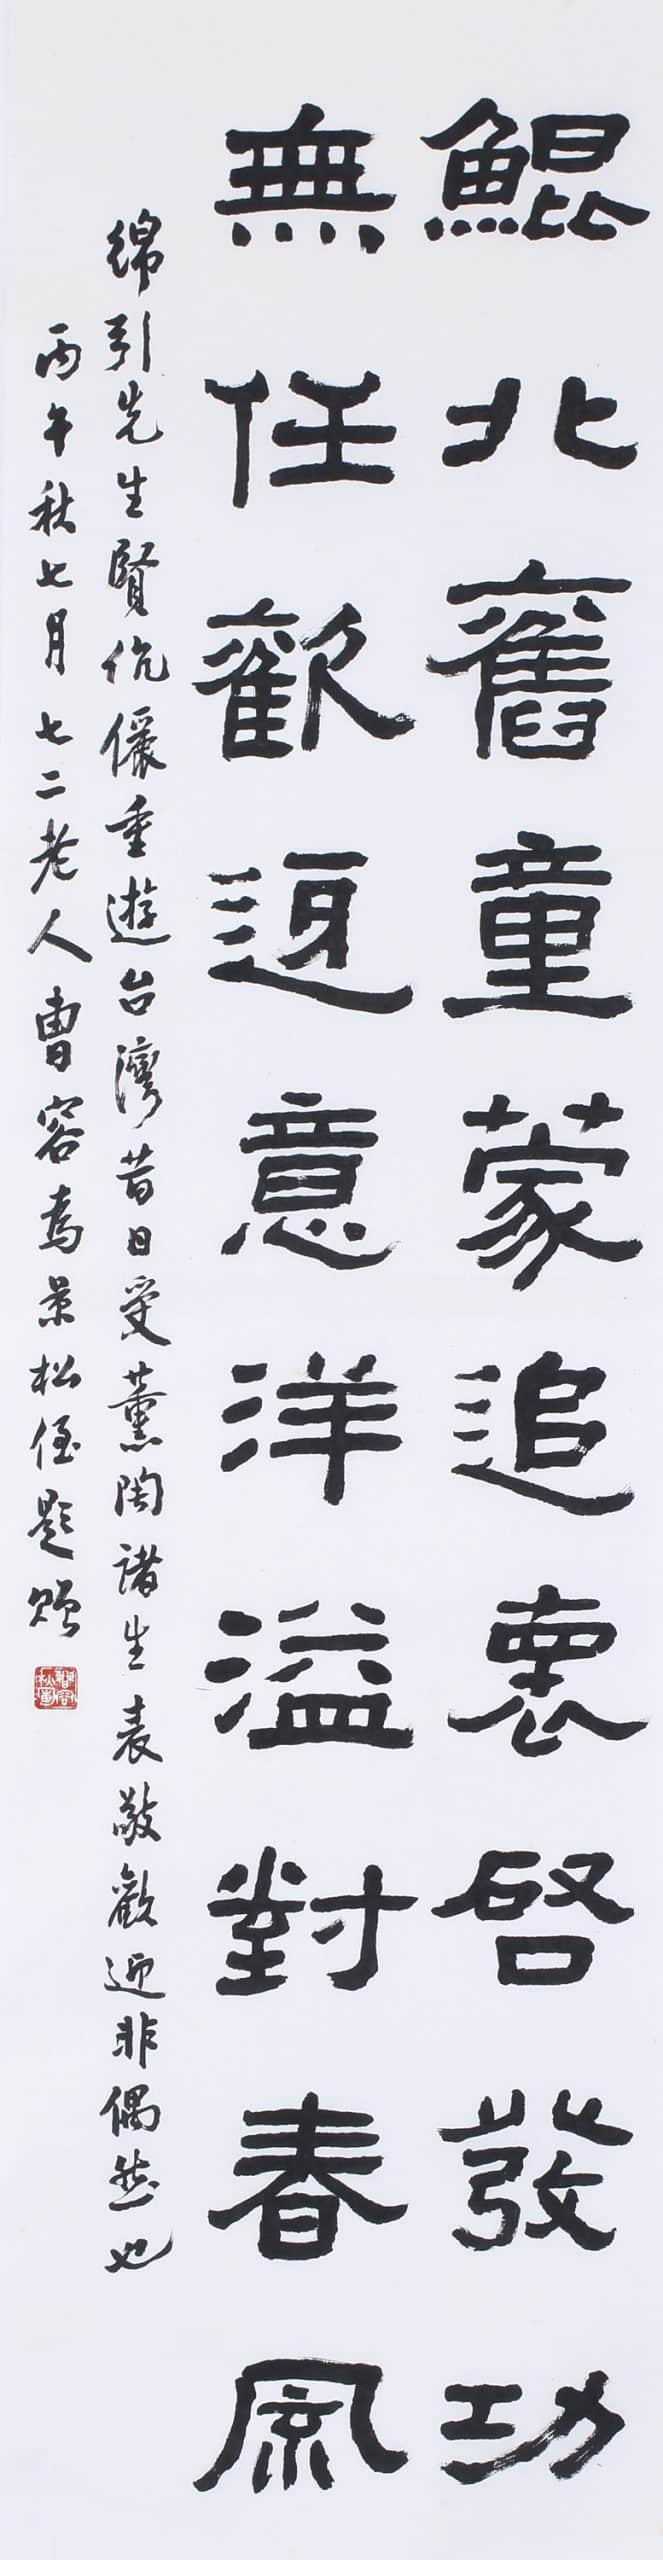 鯤北舊童蒙追褱啓發功
無任歡迎意洋溢對春風
綿引先生賢伉儷重遊台灣昔日受薰陶諸生表敬歡迎非偶然也
丙午秋七月七二老人曹容為景松侄題贈